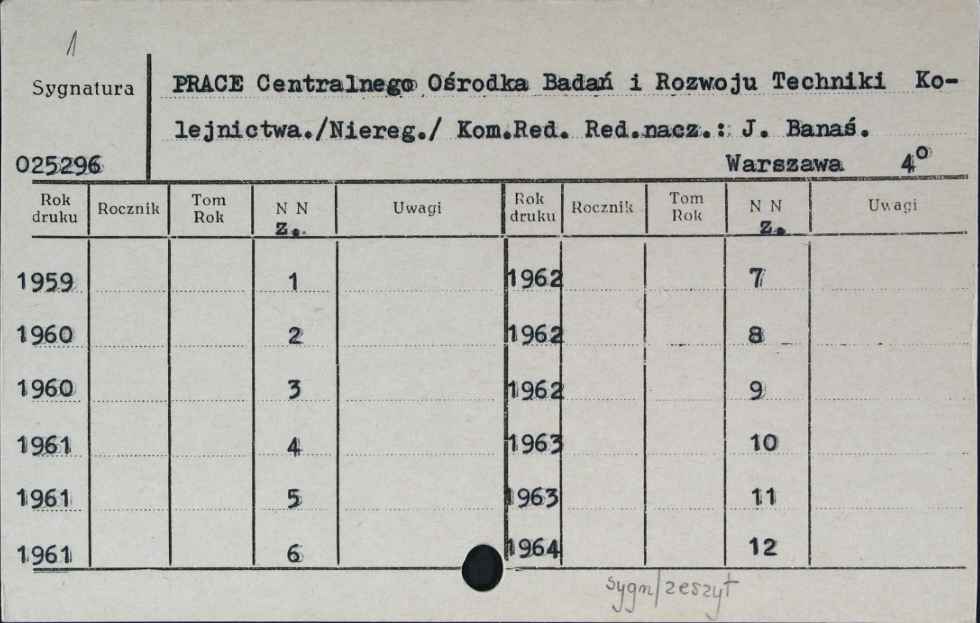 1
Sygnatura
PRACE Centralnego Ośrodka Badań i Rozwoju Techniki Ko-
lejnictwa./Niereg./ Kom.Red. Red.nacz.: J. Banaś.
025296 Warszawa 4°
Rok druku Rocznik Tom Rok N N Z. Uwagi Rok druku Rocznik Tom Rok N N Z. Uwagi
1959 1 1962 7
1960 2 1962 8
1960 3 1962 9
1961 4 1963 10
1961 5 1963 11
1961 6 1964 12
sygn/zeszyt